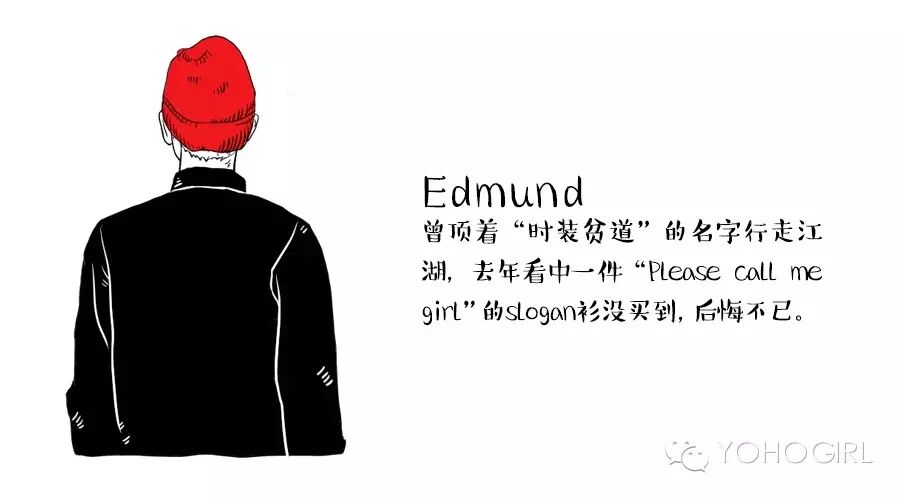 Edmund
曾顶着“时装贫道”的名字行走江
湖，去年看中一件“Please call me
girl”的slogan衫没买到，后悔不已。
YOHOGIRL